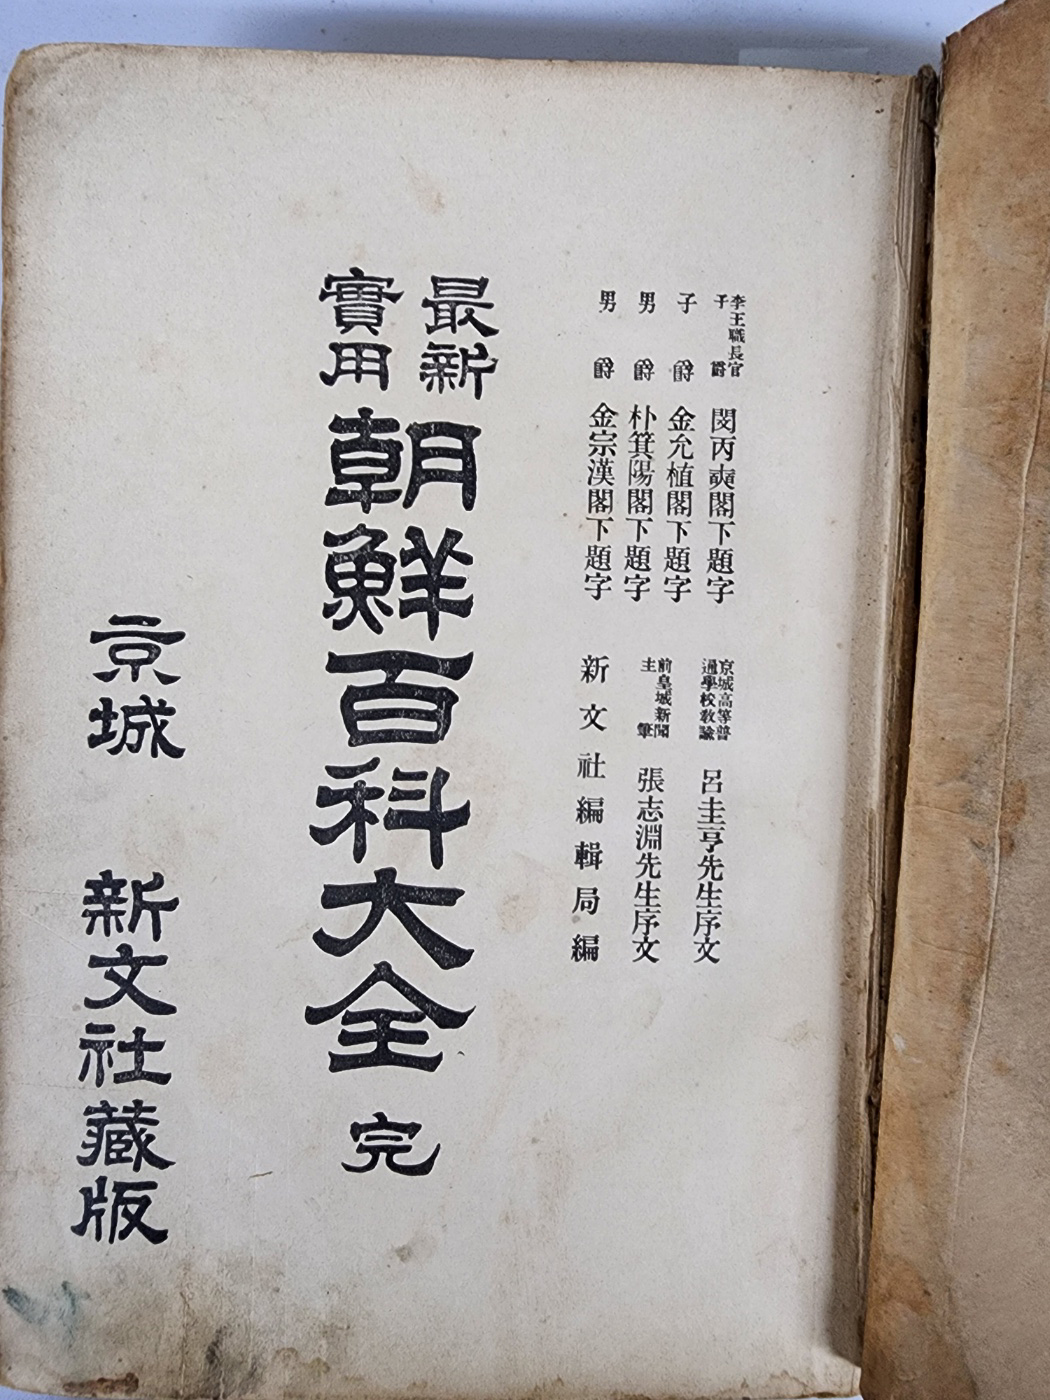 李王職長官
子爵 閔丙奭閣下題字
子爵 金允植閣下題字
男爵 朴箕陽閣下題字
男爵 金宗漢閣下題字
京城高等普
通學校敎諭 呂圭亨先生序文
前皇城新聞
主筆 張志淵先生序文
新文社編輯局編
最新
實用
朝鮮百科大全 完
京城 新文社藏版